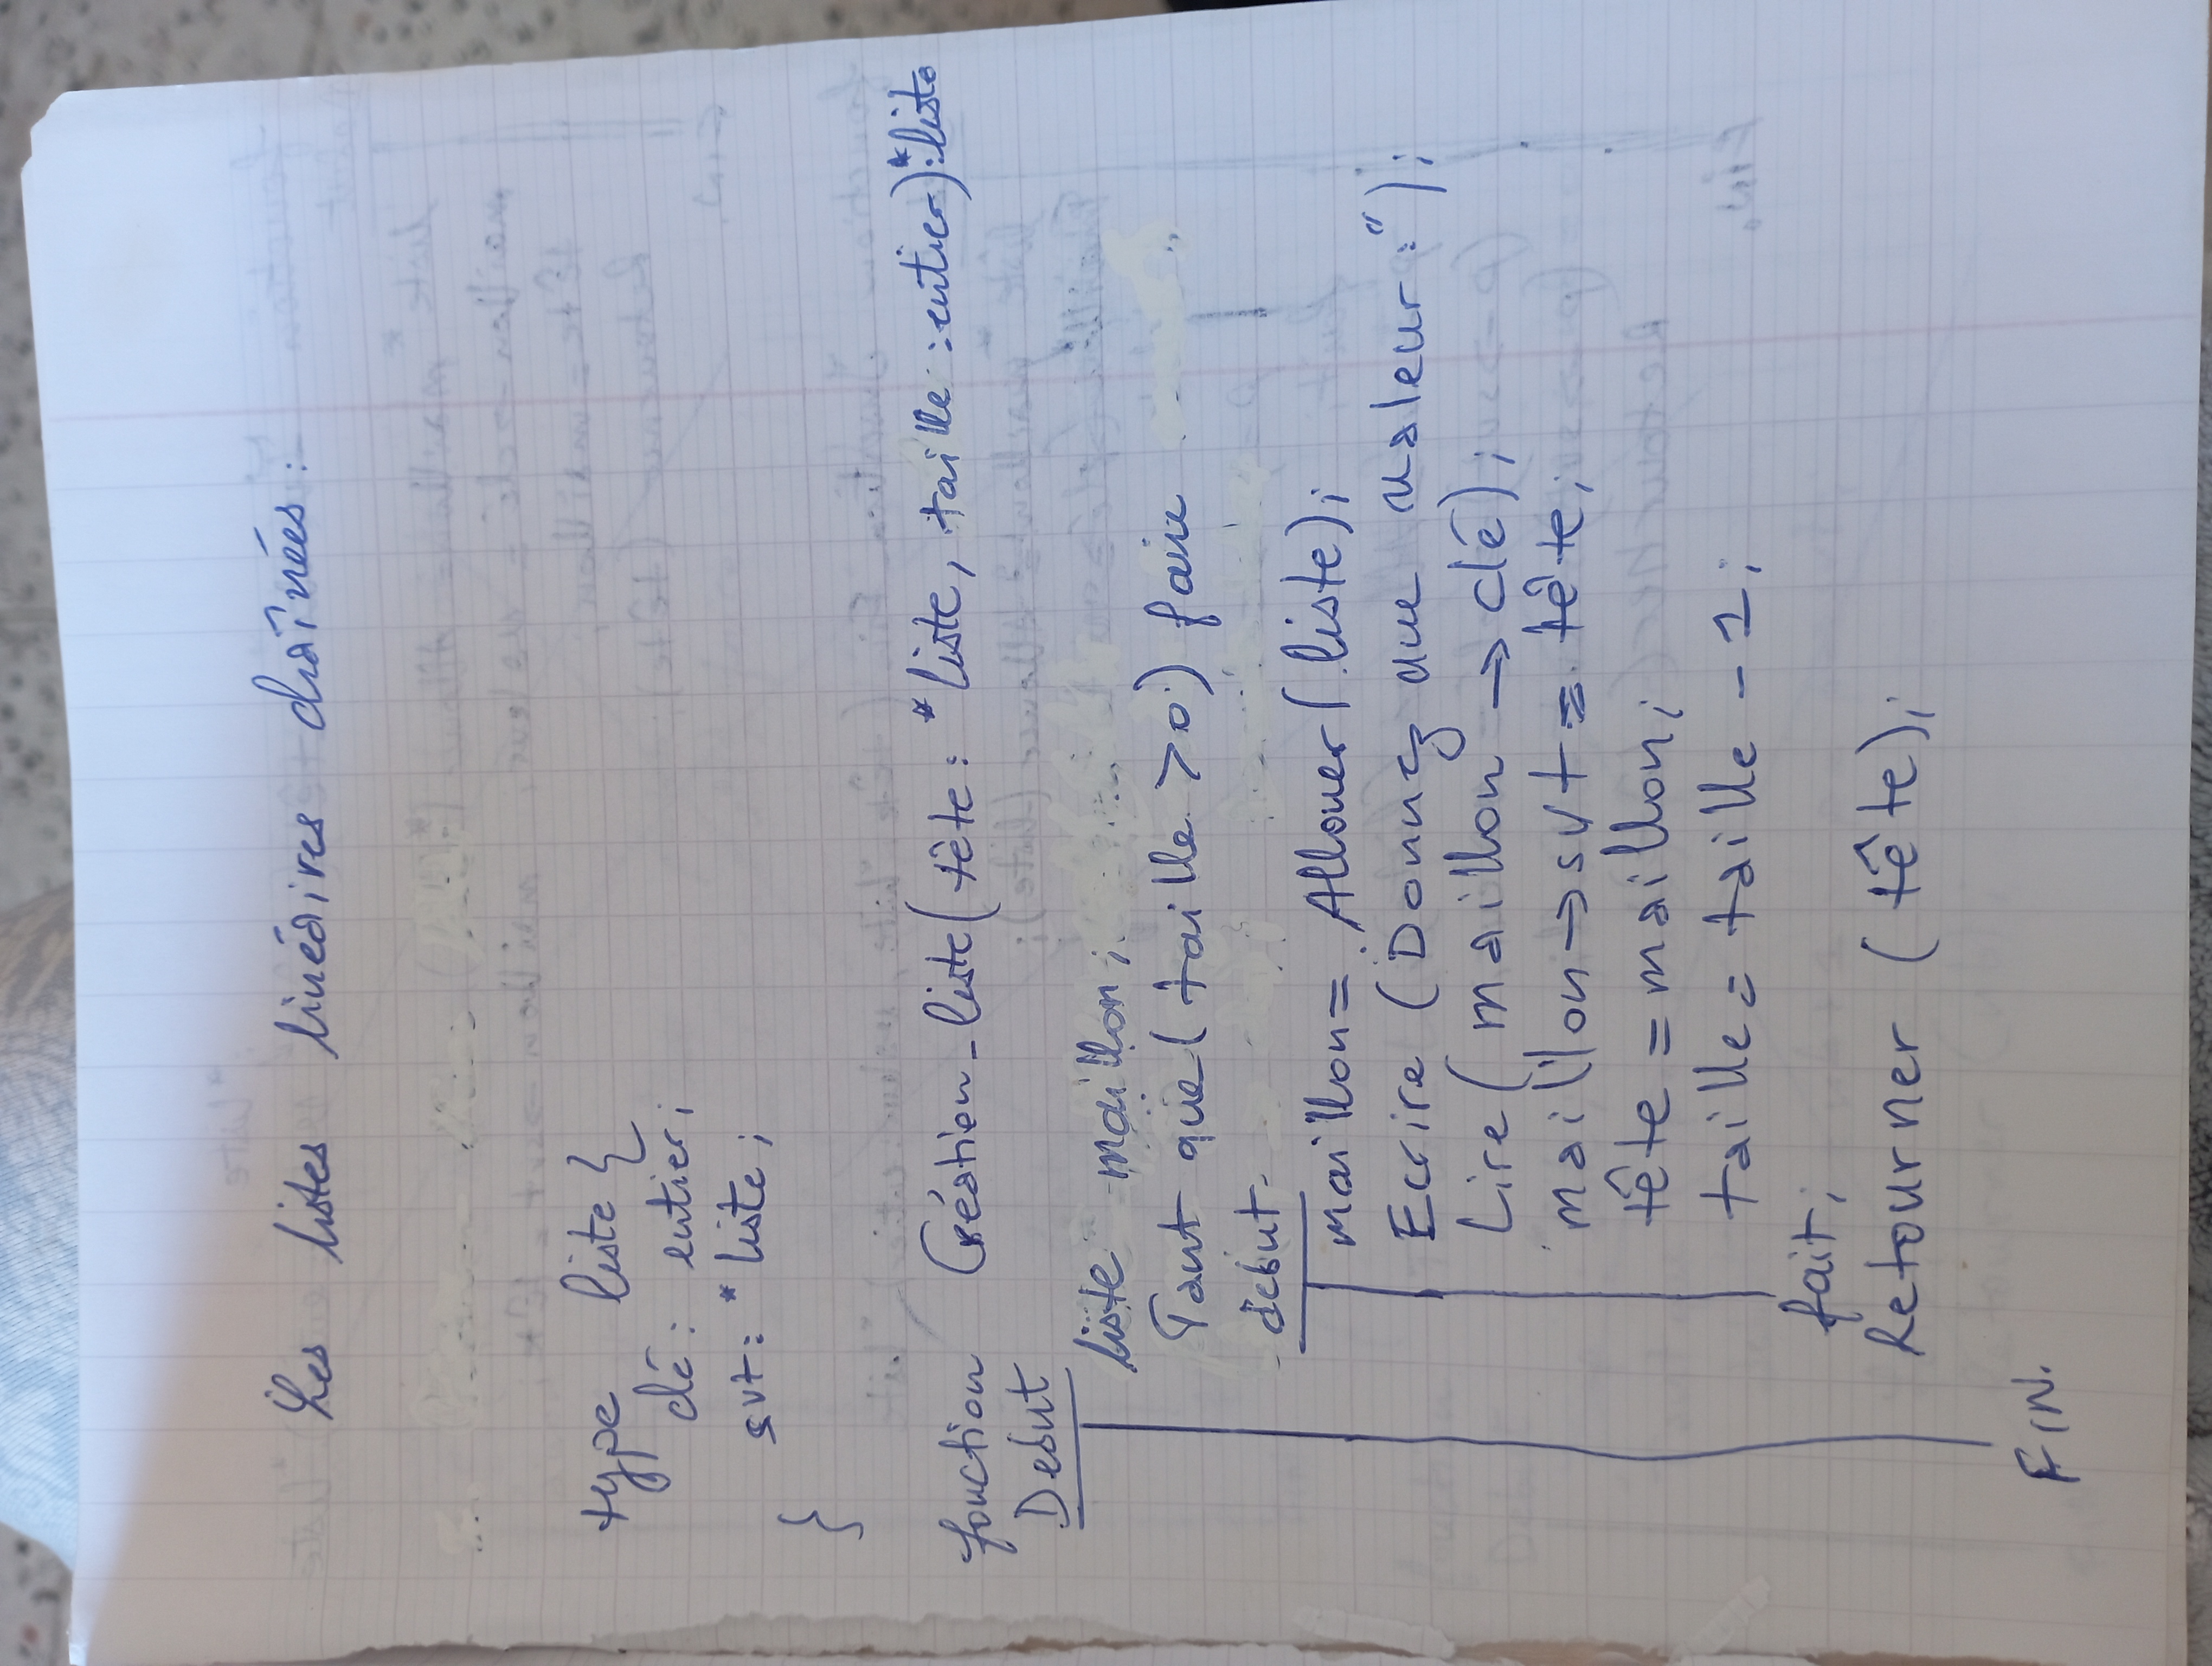 Les listes linéaires chaînées :
type liste {
clé : entier ;
svt : * liste ;
}
fonction Création_liste ( tête : * liste, taille : entier ) : * liste
Debut
liste maillon ;
Tant que ( taille > 0 ) faire
debut
maillon = Allouer ( liste ) ;
Ecrire ( Donnez une valeur : " ) ;
Lire ( maillon → clé ) ;
maillon → svt = tête ;
tête = maillon ;
taille = taille - 1 ;
fait ;
Retourner ( tête ) ;
FIN.